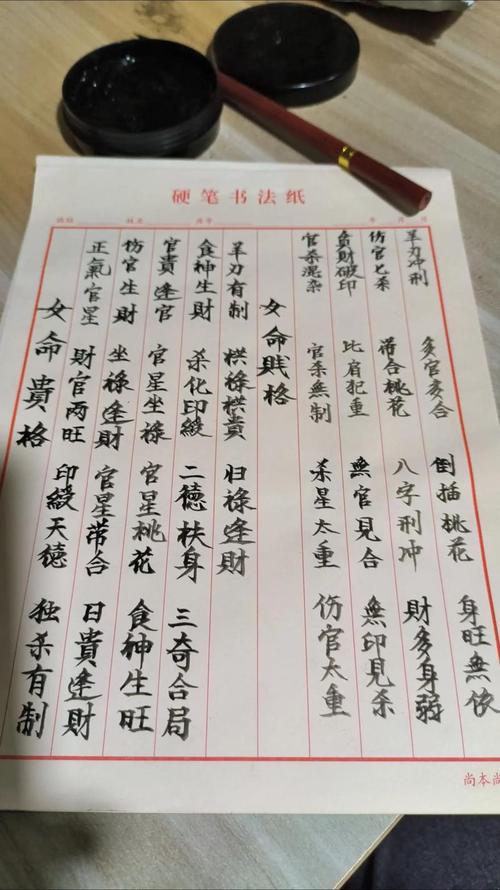 硬笔书法纸
年 月 日
女命貴格
正氣官星 財官两旺 印綬天德 独杀有制
伤官生財 坐禄逢財 官星带合 日貴逢財
官貴逢官 官星坐禄 官星桃花 食神生旺
食神生財 杀化印綬 二德扶身 三奇合局
羊刃有制 栱禄栱貴 归禄逢財
女命贱格
官杀混杂 官杀無制 杀星太重 伤官太重
貪財破印 比肩犯重 無官見合 無印見杀
伤官七杀 带合桃花 八字刑冲 財多身弱
羊刃冲刑 多官多合 倒插桃花 身旺無依
尚本尚